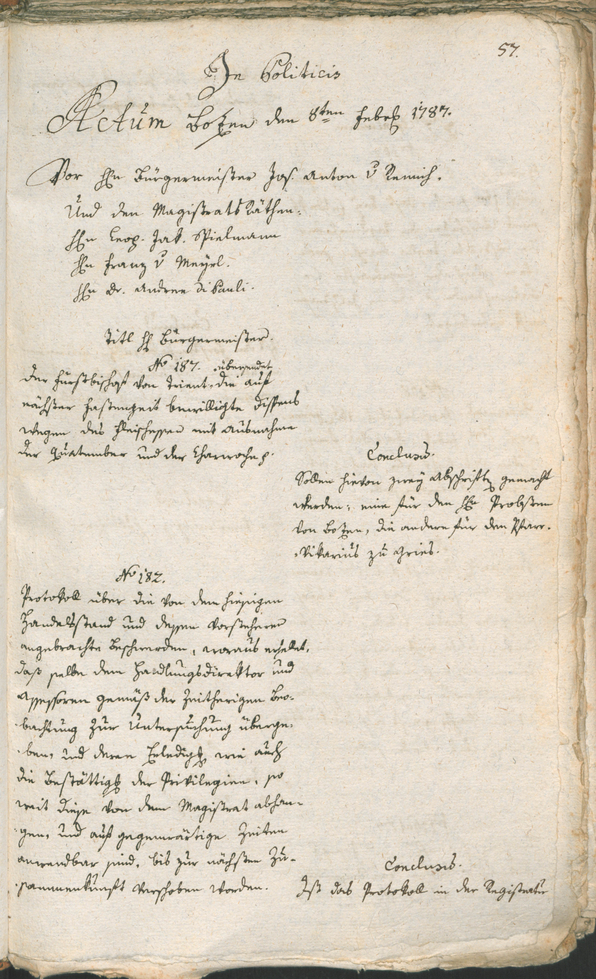 57.
In Politicis
Actum Bozen den 8ten Febr 1787.
Vor Hn Bürgermeister Jos. Anton v Remich.
Und den Magistrats Räthen.
Hn Leop. Jak. Spielmann
Hn Franz v Meÿrl.
Hn Dr. Andree di Pauli.
Titl H Bürgermeister.
No 187. übersendet
Der Fürstbischof von Trient die auf
nächster Fastenzeit bewilligte Dispens
wegen des Fleischessen mit Ausnahme
der Quatember und der Charwoche.
Conclusis.
Sollen hievon zweÿ Abschriften gemacht
werden; eine für den Hn Probsten
von Bozen, die andere für den Pfarr-
Vikarius zu Gries.
No 182.
Protokoll über die von dem hiesigen
Handelsstand und dessen Vorstehern
angebrachte Beschwerden, woraus erhellet,
daß selbe dem Handlungsdirektor und
Assessoren gemäß der Zeitherigen Beo-
bachtung zur Untersuchung überge-
ben, und deren Erledigg, wie auch
die Bestättigg der Privilegien, so
weit diese von dem Magistrat abhan-
gen, und auf gegenwärtige Zeiten
anwendbar sind, bis zur nächsten Zu-
sammenkunft verschoben worden.
Conclusis.
Ist das Protokoll in der Registratur